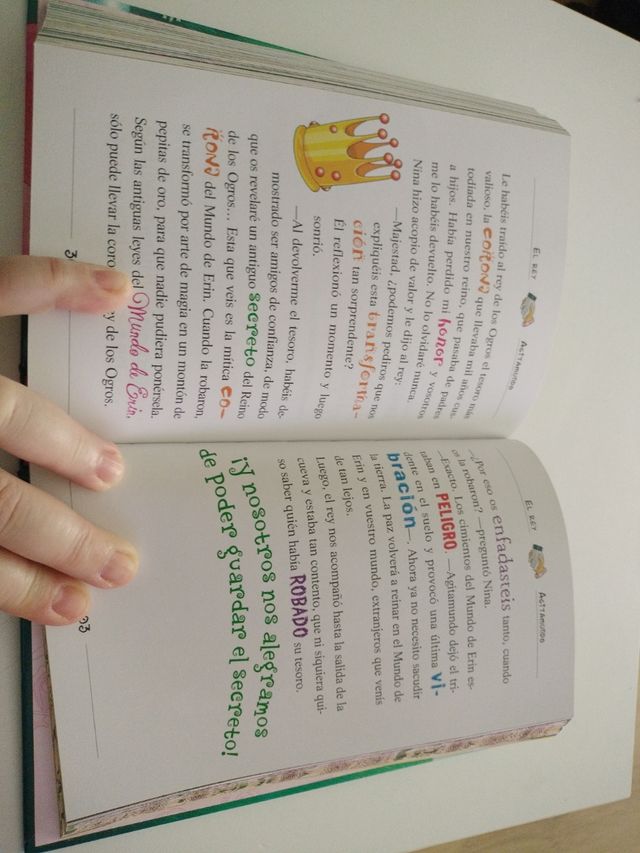 EL REY AGITAMUNDO
Le habéis traído al rey de los Ogros el tesoro más
valioso, la corona que llevaba mil años cus-
todiada en nuestro reino, que pasaba de padres
a hijos. Había perdido mi honor y vosotros
me lo habéis devuelto. No lo olvidaré nunca.
Nina hizo acopio de valor y le dijo al rey:
—Majestad, ¿podemos pediros que nos
expliquéis esta transforma-
ción tan sorprendente?
Él reflexionó un momento y luego
sonrió.
—Al devolverme el tesoro, habéis de-
mostrado ser amigos de confianza, de modo
que os revelaré un antiguo secreto del Reino
de los Ogros... Esta que veis es la mítica co-
rona del Mundo de Erin. Cuando la robaron,
se transformó por arte de magia en un montón de
pepitas de oro, para que nadie pudiera ponérsela.
Según las antiguas leyes del Mundo de Erin,
sólo puede llevar la coro ey de los Ogros.
3
EL REY AGITAMUNDO
—¿Por eso os enfadasteis tanto, cuando
os la robaron? —preguntó Nina.
—Exacto. Los cimientos del Mundo de Erin es-
taban en PELIGRO. —Agitamundo dejó el tri-
dente en el suelo y provocó una última vi-
bración—. Ahora ya no necesito sacudir
la tierra. La paz volverá a reinar en el Mundo de
Erin y en vuestro mundo, extranjeros que venís
de tan lejos.
Luego, el rey nos acompañó hasta la salida de la
cueva y estaba tan contento, que ni siquiera qui-
so saber quién había ROBADO su tesoro.
¡Y nosotros nos alegramos
de poder guardar el secreto!
93